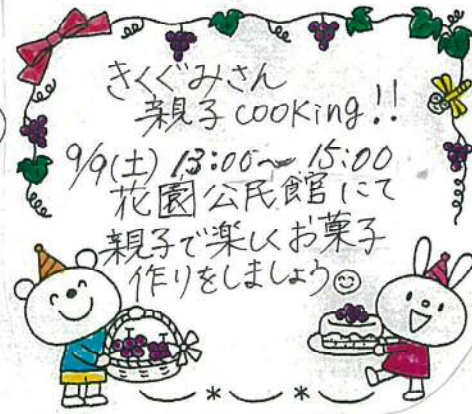 きくぐみさん
親子cooking!!
9/9(土) 13:00〜15:00
花園公民館にて
親子で楽しくお菓子
作りをしましょう☺